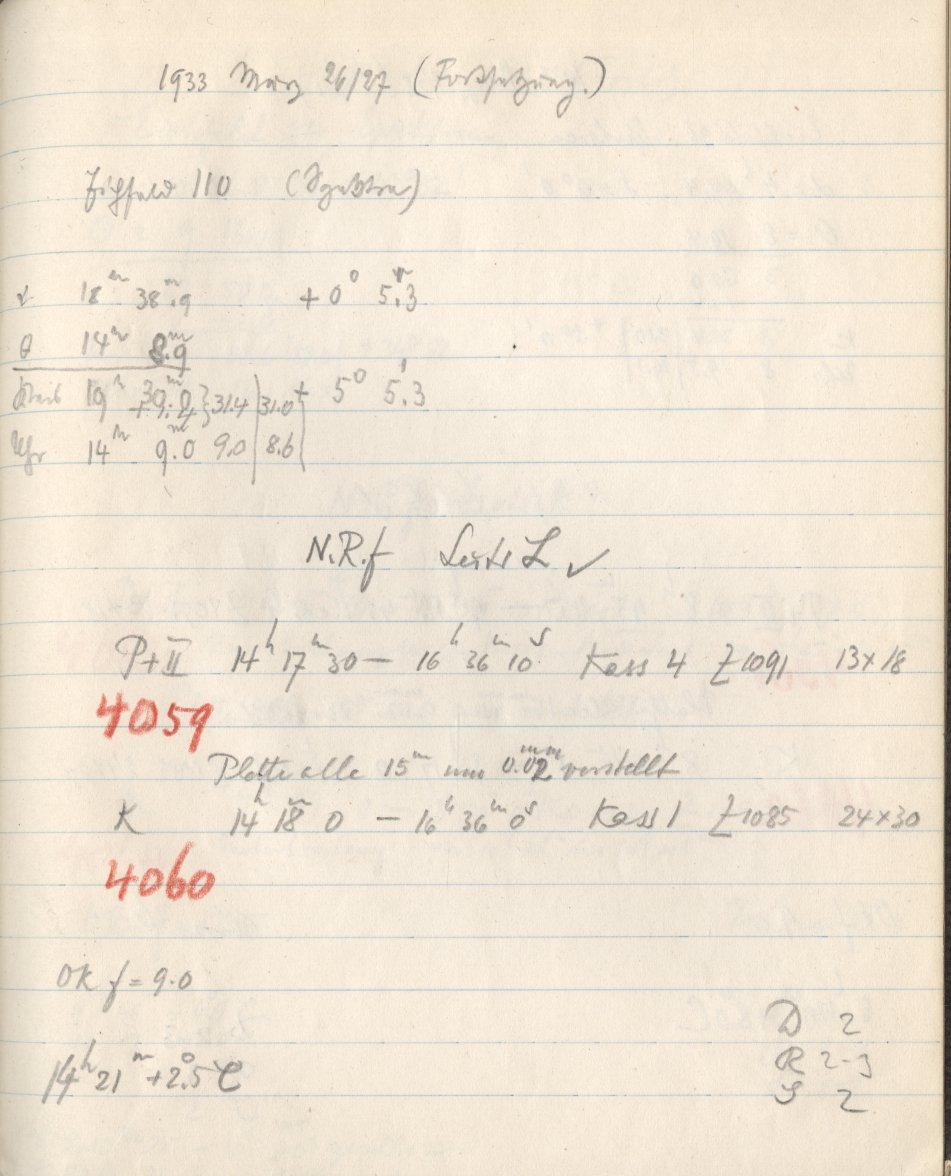 1933 März 26/27 (Fortsetzung.)
Eichfeld 110 (Spektra)
α 18ʰ 38ᵐ.9 + 0° 5'.3
θ 14ʰ 8ᵐ.9
Kreis 19ʰ 31.4 31.0 + 5° 5'.3
Uhr 14ʰ 9ᵐ.0 9.0 8.6
N.R.f Leits L ✓
P+II 14ʰ 17ᵐ 30 — 16ʰ 36ᵐ 10ˢ Kass 4 Z1091 13×18
4059
Platte alle 15ᵐ um 0.02ᵐᵐ verstellt
K 14ʰ 18ᵐ 0 — 16ʰ 36ᵐ 0ˢ Kass 1 Z1085 24×30
4060
OK f = 9.0
14ʰ 21ᵐ +2°.5 C
D 2
R 2-3
S 2